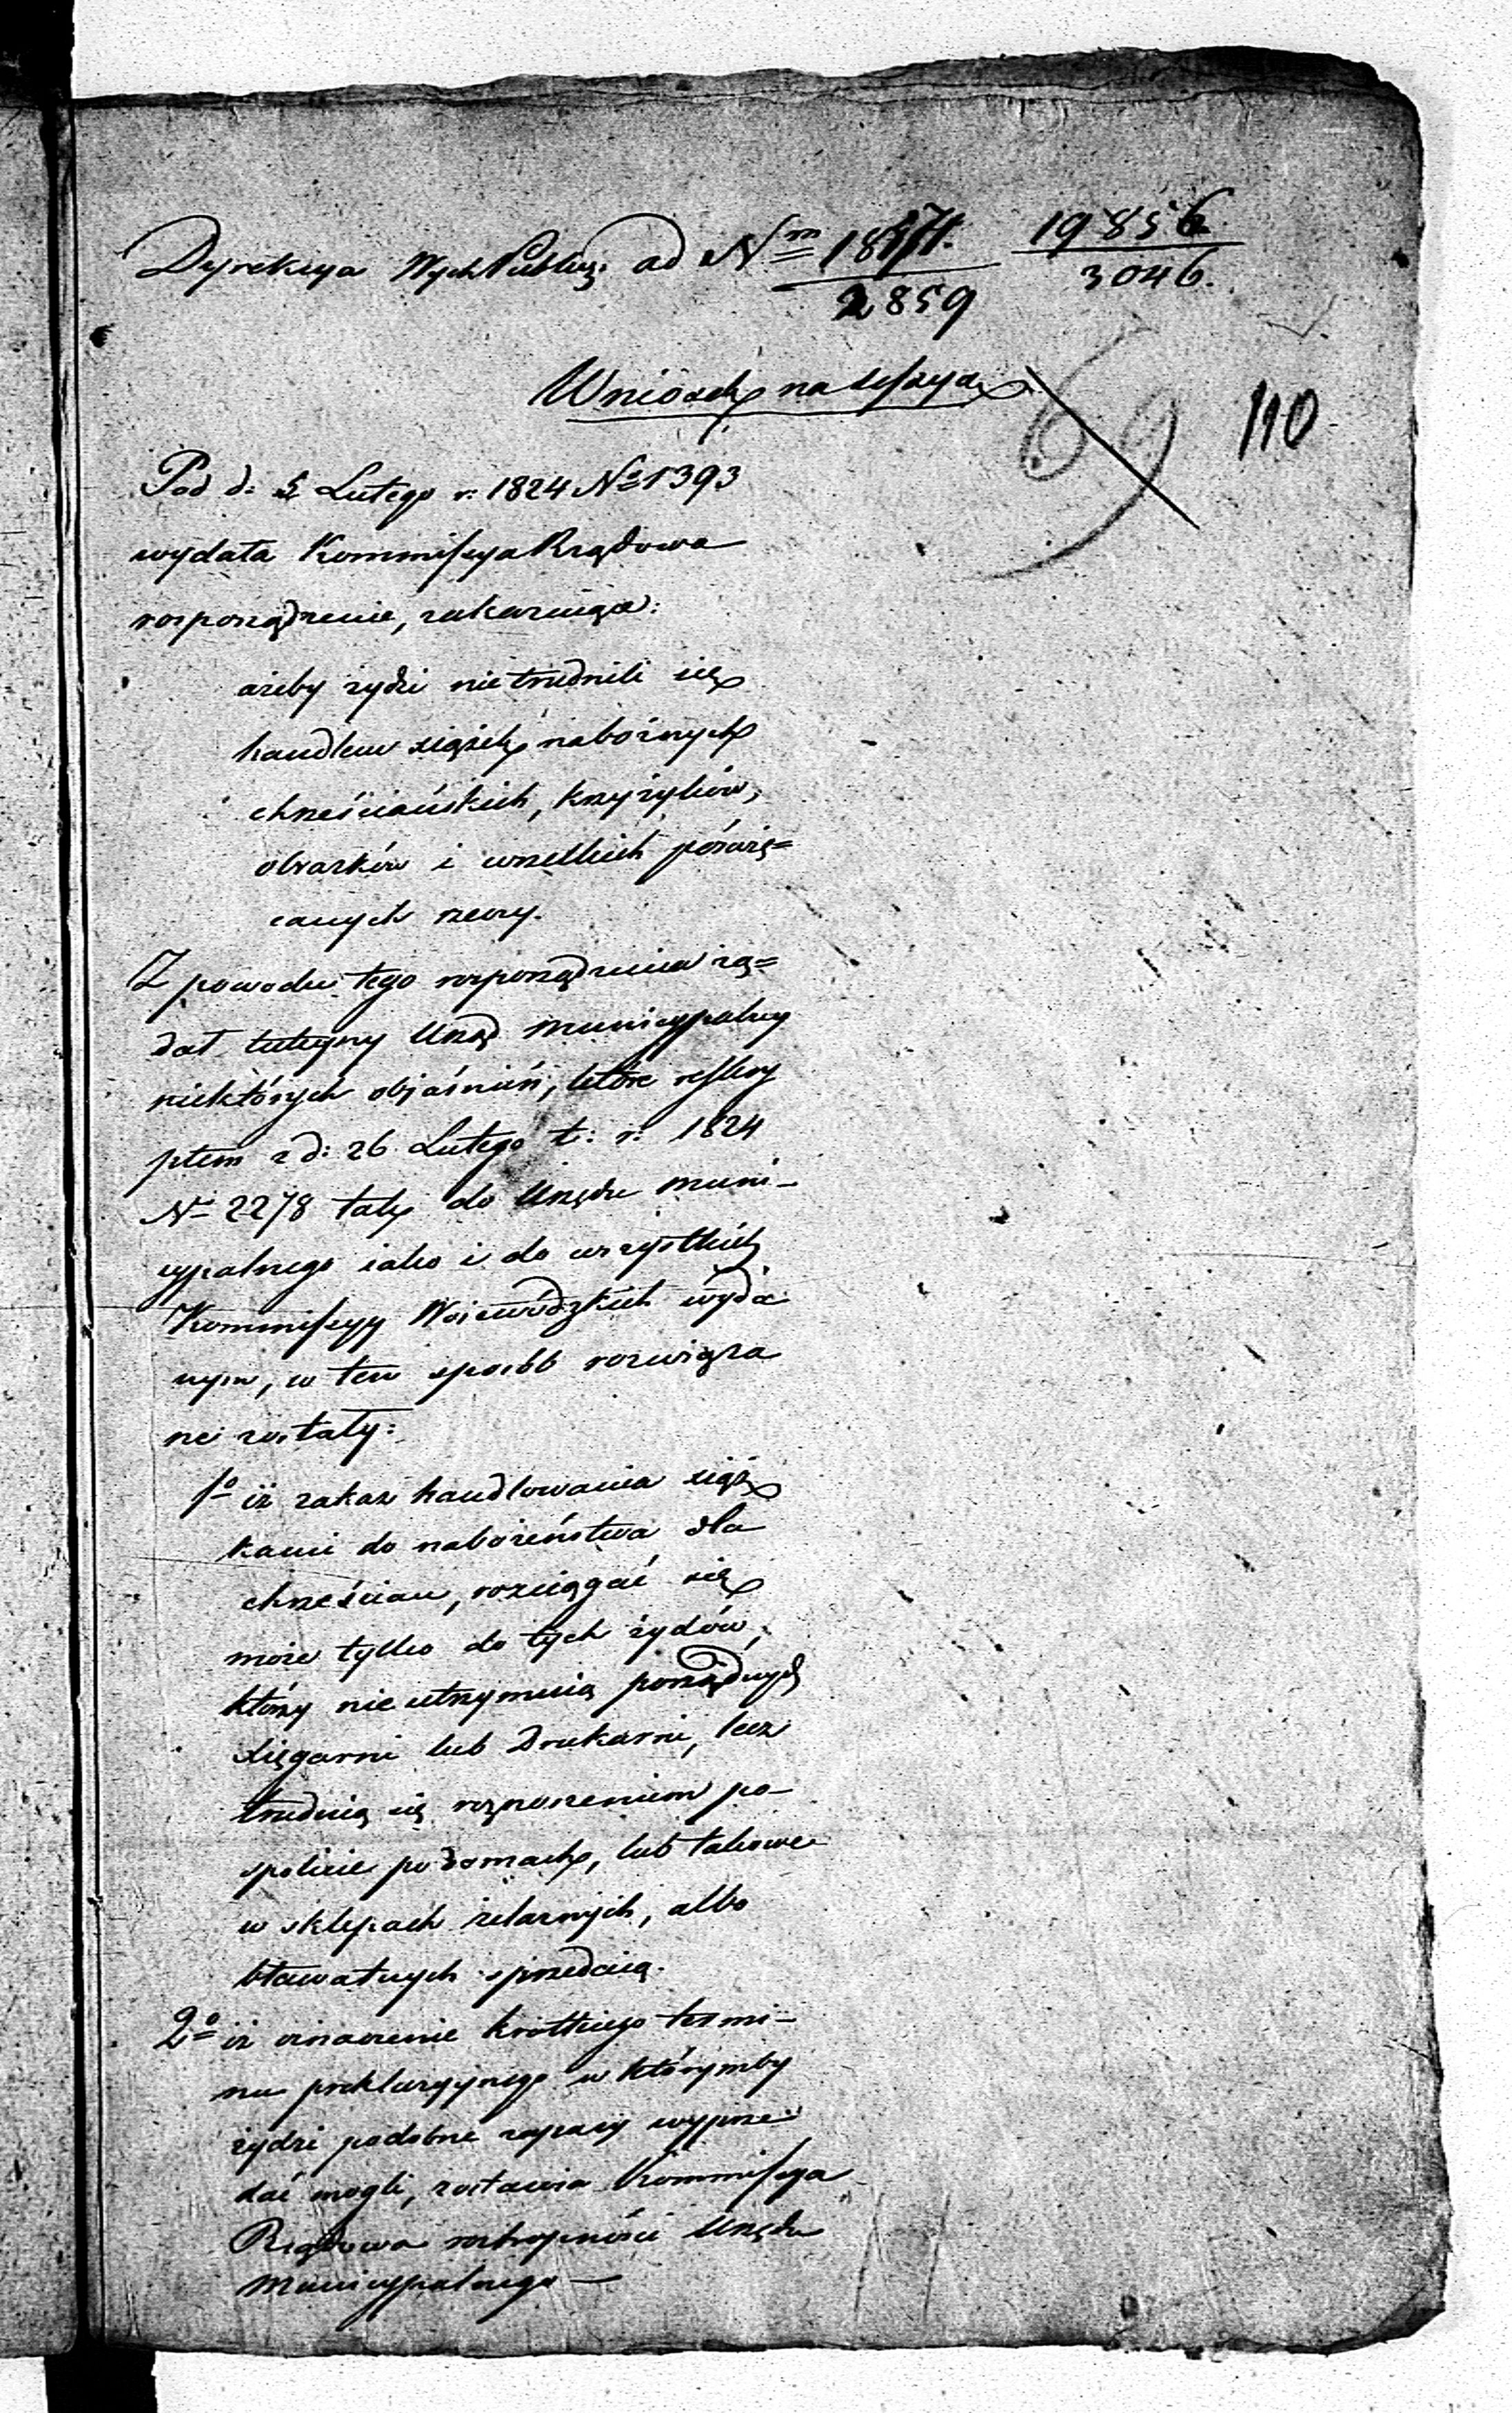 Dyrekcya Wych Publicz: ad Nm 1817/4. 19856
2859 3046.
Wniosek na sessyą
69 110
Pod d: 5 Lutego r: 1824 No 1393
wydała Kommissya Rządowa
rosporządzenie, zakazuiące:
ażeby żydzi nietrudnili się
handlem xiążek nabożnych
chrześciańskich, krzyżyków,
obrazków i wszelkich poświę=
canych rzeczy.
Z powodu tego rosporządzenia żą=
dał tuteyszy Urząd Municypalny
niektórych objaśnień, które reskry
ptem z d: 26 Lutego t: r: 1824
No 2278 tak do Urzędu muni-
cypalnego iako i do wszystkich
Kommissyy Woiewódzkich wyda
nym, w ten sposób rozwiąza
ne zostały:
1o iż zakaz handlowania xiąż
kami do nabożeństwa dla
chrześcian, rozciągać się
może tylko do tych żydów,
którzy nie utrzymuią porządnych
xięgarni lub Drukarni, lecz
trudnią się roznoszeniem po-
spolicie po domach, lub takowe
w sklepach żelaznych, albo
bławatnych sprzedaią.
2o iż oznaczenie krótkiego termi-
nu prekluzyjnego w którymby
żydzi podobne zapasy wyprze
dać mogli, zostawia Kommissya
Rządowa roztropności Urzędu
Municypalnego —